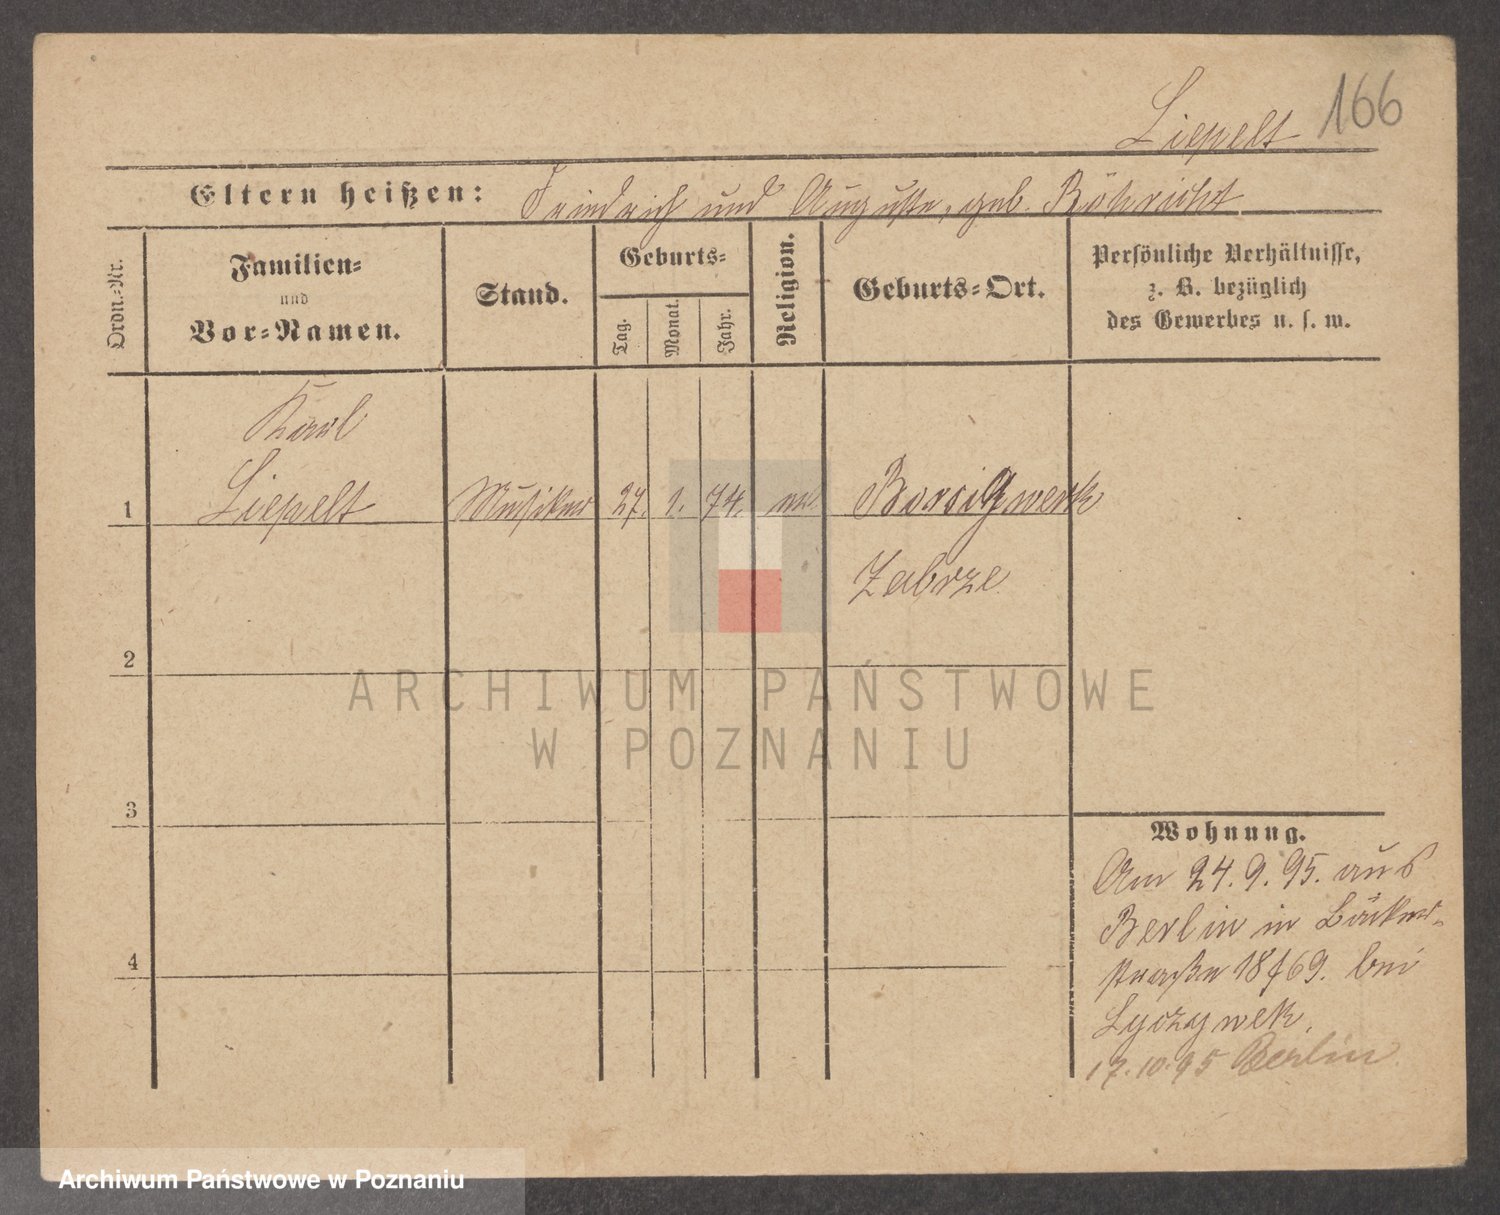 Liepelt 166
Eltern heißen: Friedrich und Auguste, geb. Böhricht
Ordn.-Nr.
Familien-
und
Vor-Namen.
Stand.
Geburts-
Tag.
Monat.
Jahr.
Religion.
Geburts-Ort.
Persönliche Verhältnisse,
z. B. bezüglich
des Gewerbes u. s. w.
Karl
1 Liepelt Musiker 27. 1. 74. ev. Borsigwerk
Zabrze
2
3
4
Wohnung.
Am 24. 9. 95. aus
Berlin in Bäcker-
straße 18/69. bei
Lyczywek.
17.10.95 Berlin
ARCHIWUM PAŃSTWOWE
W POZNANIU
Archiwum Państwowe w Poznaniu